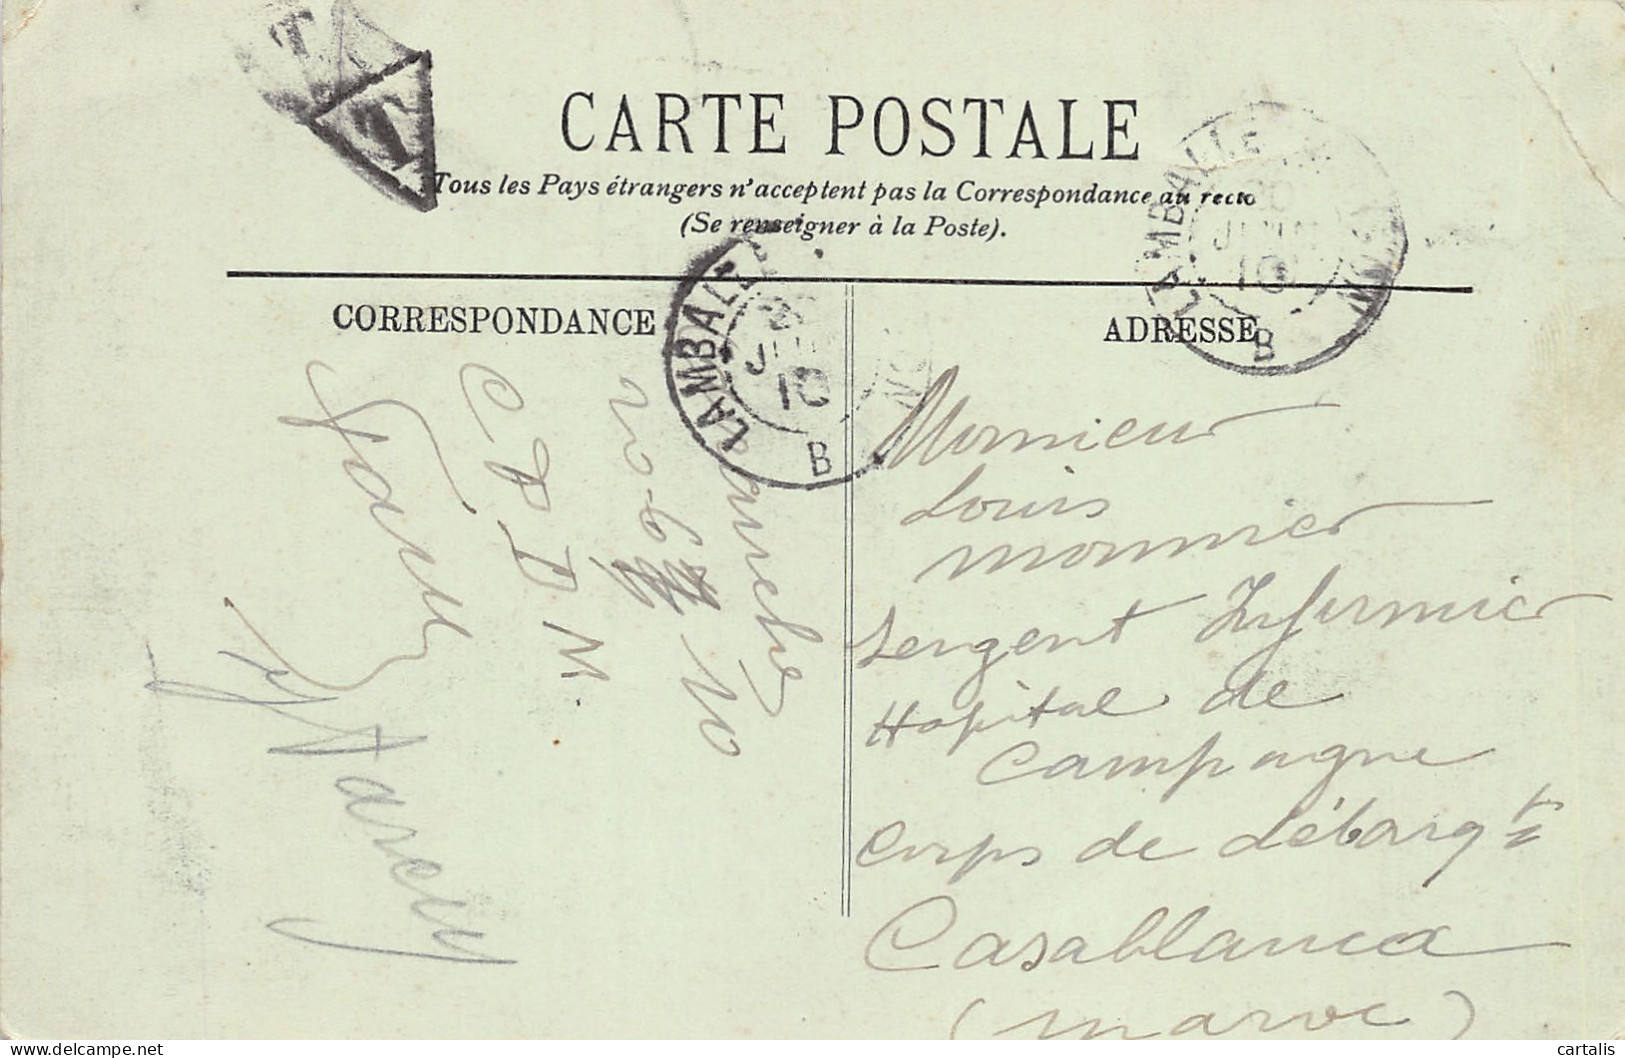 T
T
CARTE POSTALE
Tous les Pays étrangers n'acceptent pas la Correspondance au recto
(Se renseigner à la Poste).
LAMBALLE
JUIN
10
B
LAMBALLE
JUIN
10
B
CORRESPONDANCE
ADRESSE
20-6
10
C P D M
Monsieur
Louis
Monnier
Sergent Infirmier
Hopital de
Campagne
Corps de Débarqts
Casablanca
(Maroc)
cartalis